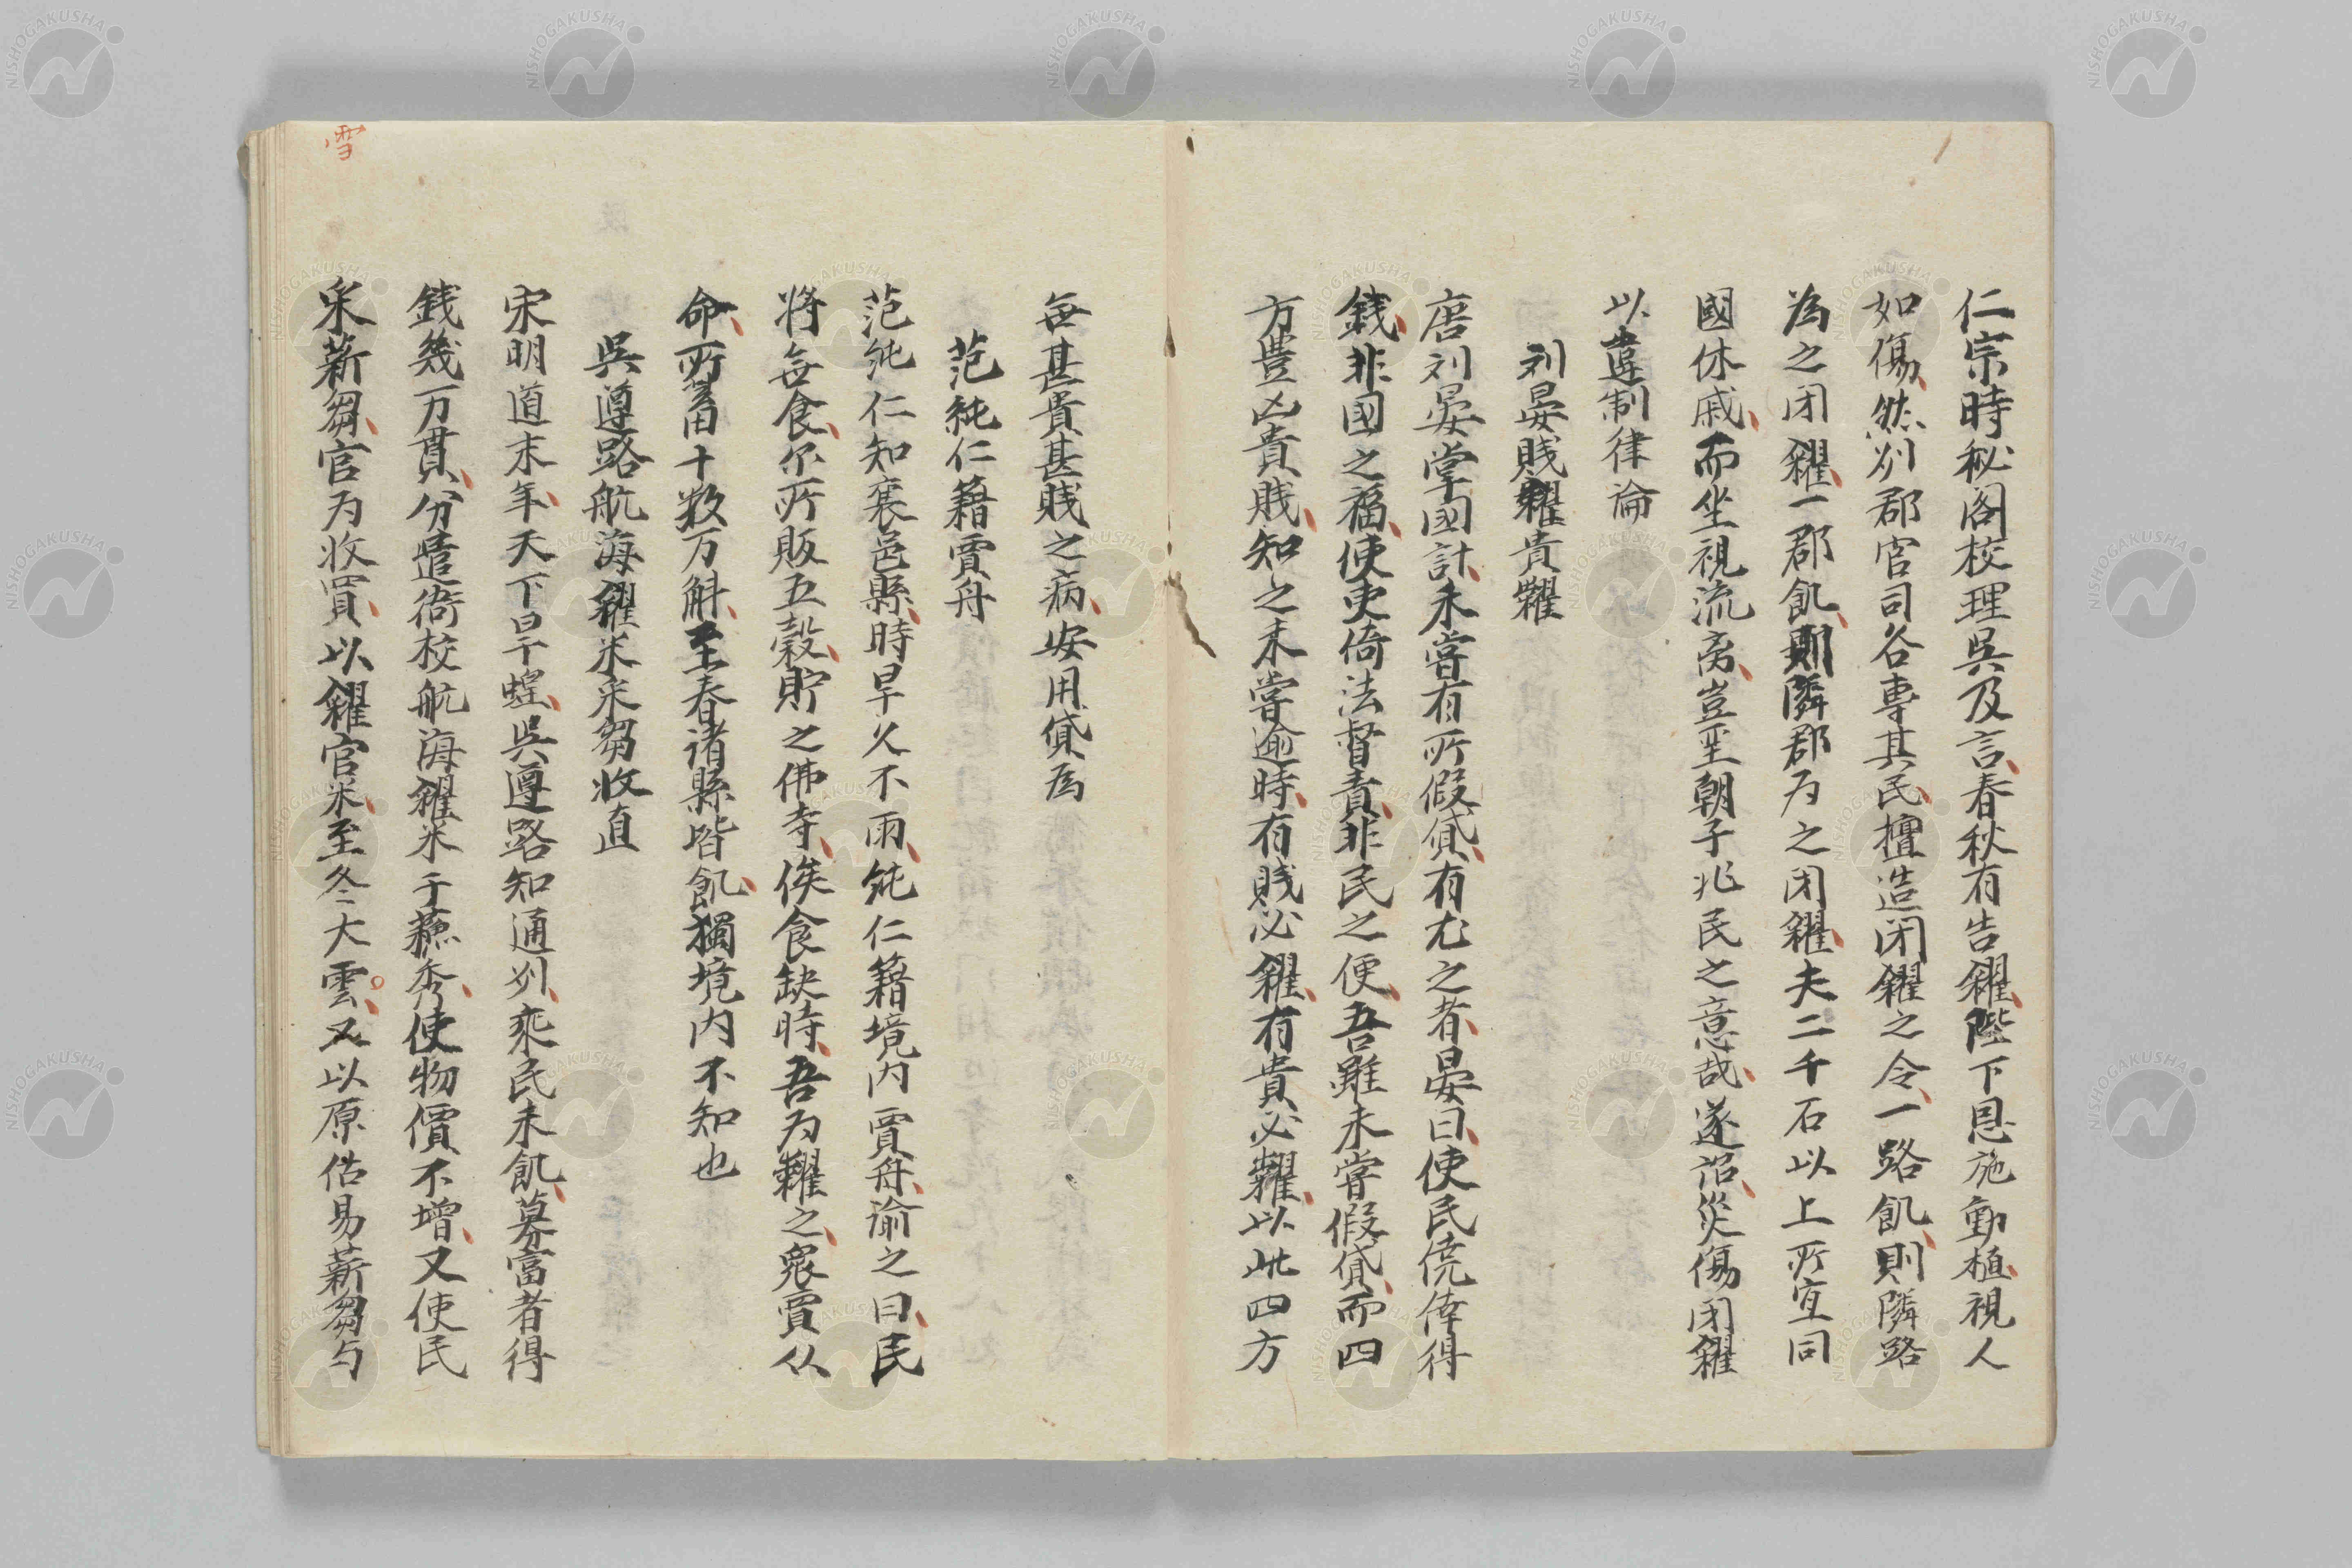 仁宗時秘閣校理吳及言春秋有告糴陛下恩施動植視人
如傷然州郡官司各專其民擅造閉糴之令一路飢則隣路
為之閉糴一郡飢則隣郡为之閉糴夫二千石以上所宜同
國休戚而坐視流离豈至朝子兆民之意哉遂詔災傷閉糴
以違制律論
刘晏賎糴貴糶
唐刘晏掌國計未嘗有所假貸有尤之者晏曰使民僥倖得
銭非國之福使吏倚法督責非民之便吾雖未嘗假貸而四
方豊凶貴賎知之未嘗逾時有賎必糴有貴必糶以此四方
無甚貴甚賎之病安用貸為
范純仁籍賈舟
范純仁知襄邑縣時旱久不雨純仁籍境内賈舟諭之曰民
将無食尔所販五穀貯之佛寺俟食缺時吾为糶之衆賈从
命所蓄十数万斛至春諸縣皆飢獨境内不知也
吳遵路航海糴米采芻收直
宋明道末年天下旱蝗吳遵路知通州乘民未飢募富者得
銭幾万貫分遣衙校航海糴米于蘓秀使物價不增又使民
采薪芻官为收買以糴官米至冬大雲又以原估易薪芻与
雪
NISHOGAKUSHA